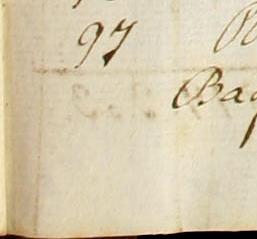 97
Bag